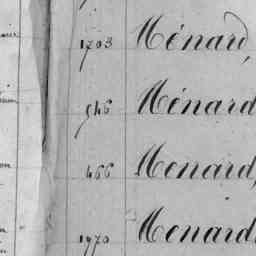 1703 Ménard,
546 Ménard
466 Menard,
1970 Menard,